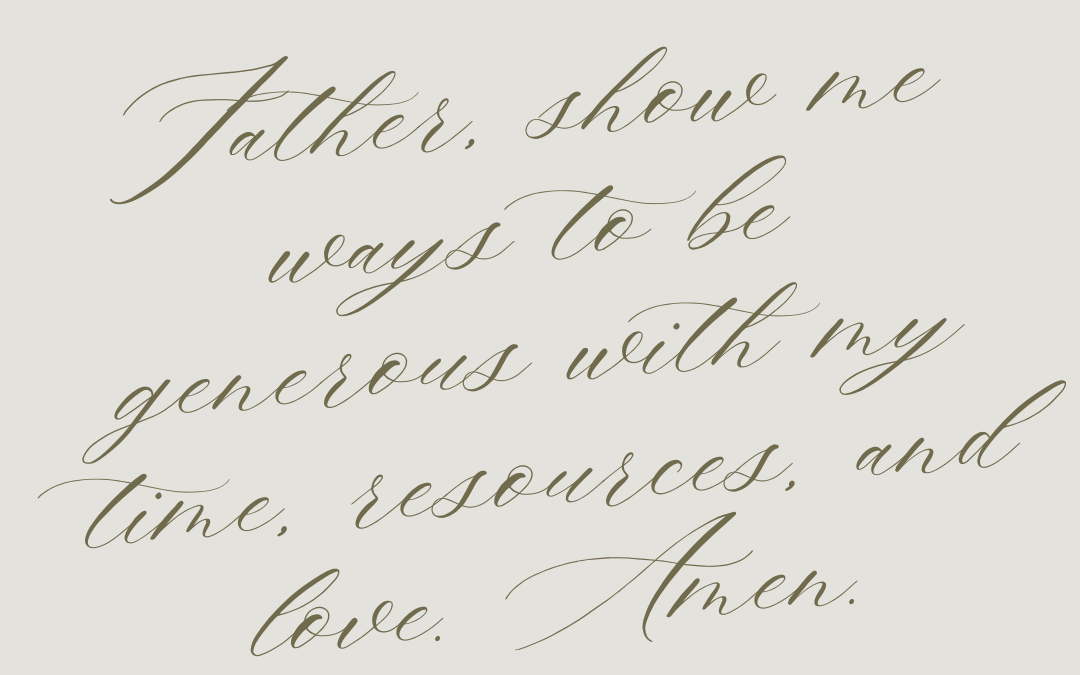 Father, show me
ways to be
generous with my
time, resources, and
love. Amen.